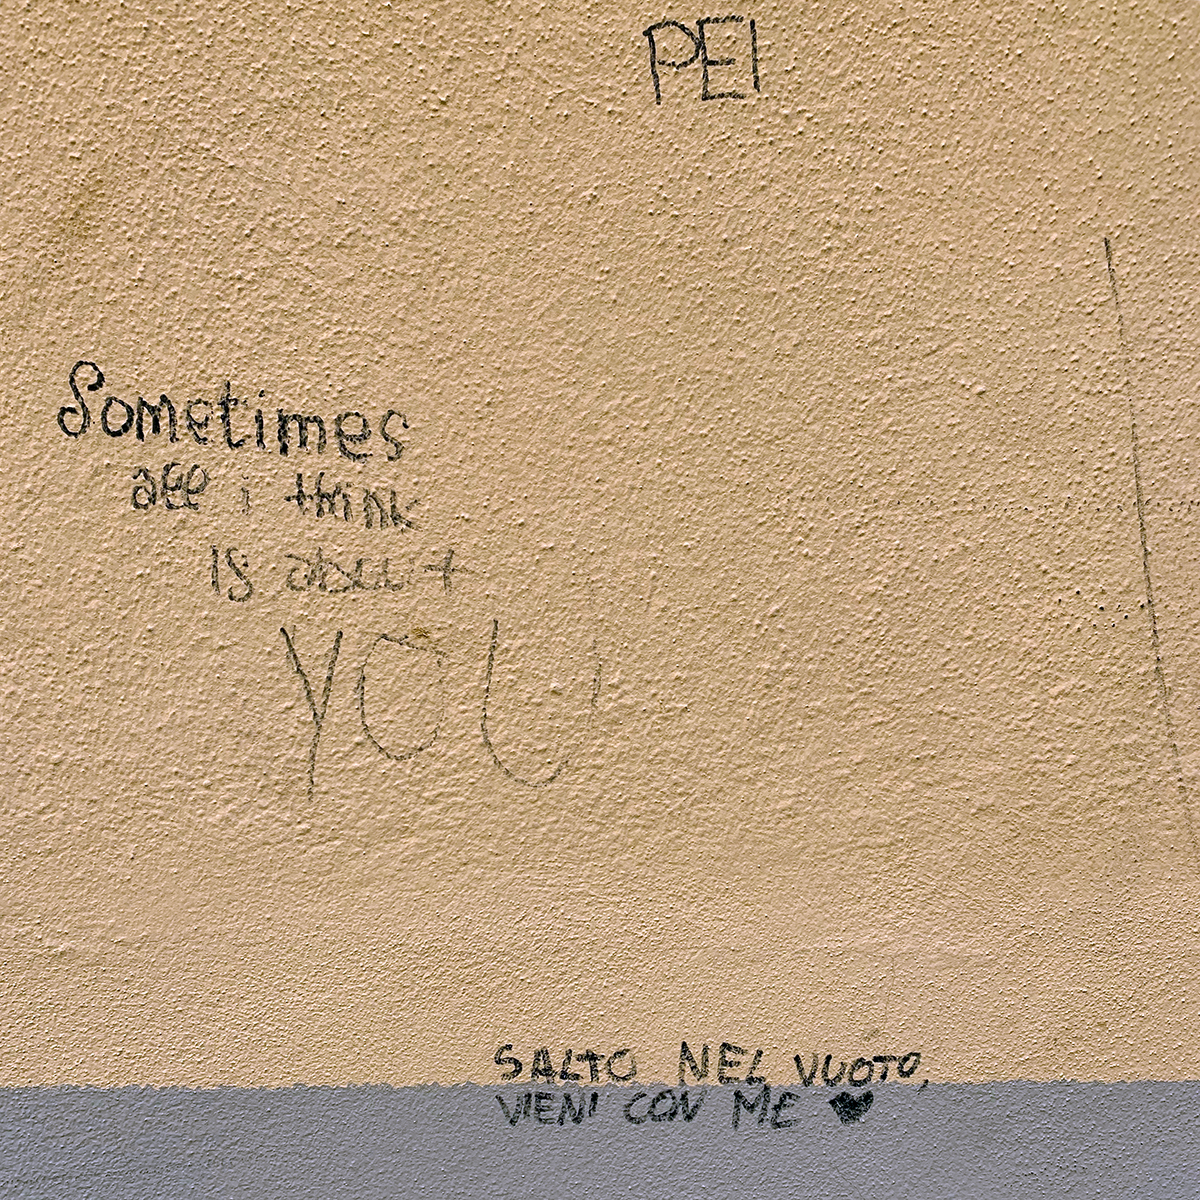 PEI
Sometimes
all i think
is about
YOU
SALTO NEL VUOTO,
VIENI CON ME ♥